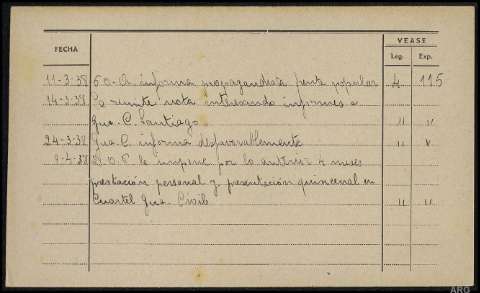 VEASE
FECHA
Leg. Exp.
11-3-38 S.O.P. informa propagandista frente popular 4 115
14-3-38 Se remite nota interesando informes a
Gua. C. Santiago " "
24-3-38 Gua. C. informa desfavorablemente " "
9-4-38 D.O.P. le impone por lo anterior 4 meses
prestación personal y presentación quincenal en
Cuartel Gua. Civil " "
ARG